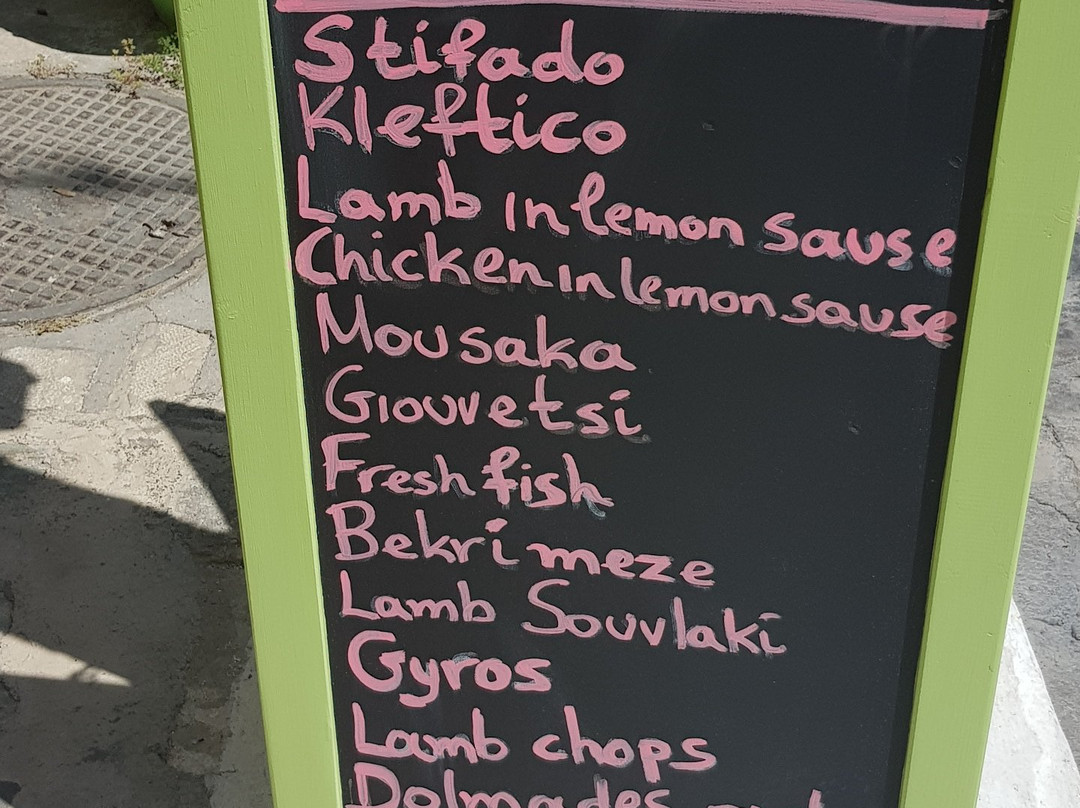 Stifado
Kleftico
Lamb in lemon sause
Chicken in lemon sause
Mousaka
Giouvetsi
Fresh fish
Bekri meze
Lamb Souvlaki
Gyros
Lamb chops
Dolmades